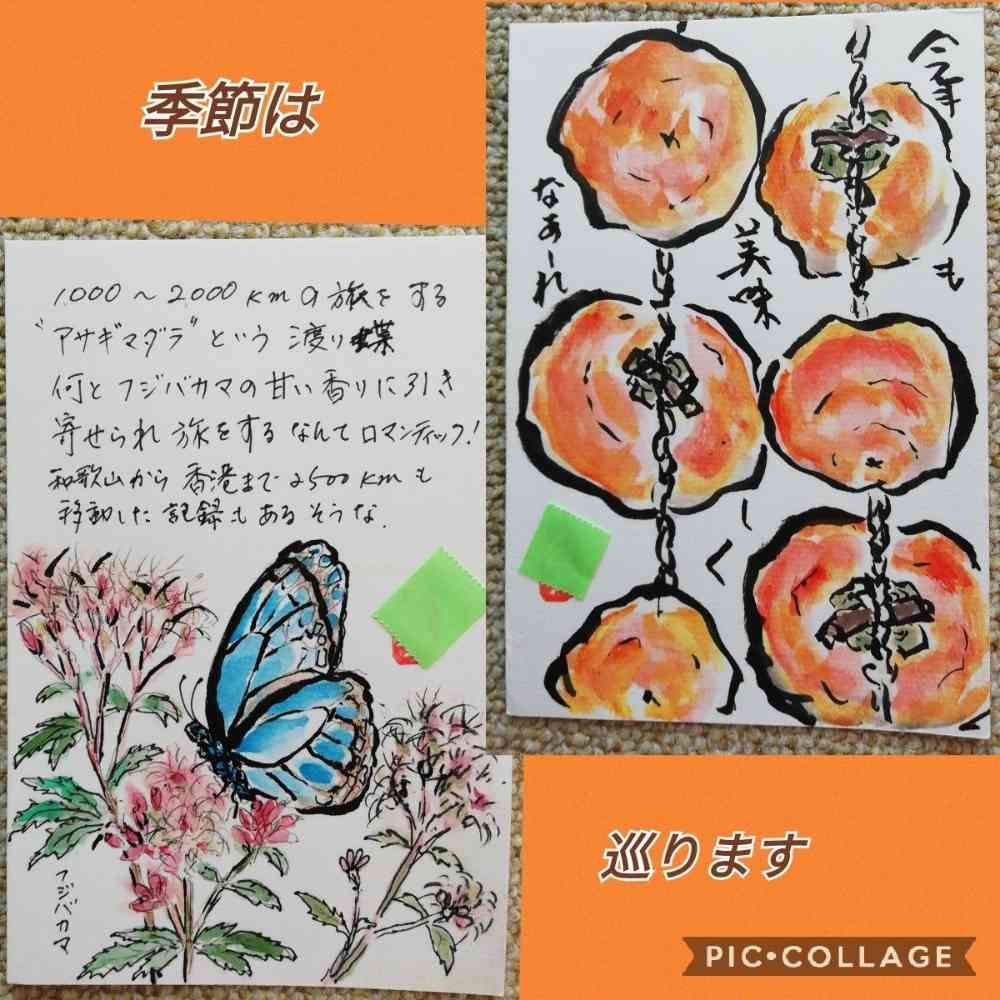 季節は
1,000〜2,000kmの旅をする
"アサギマダラ"という渡り蝶
何とフジバカマの甘い香りに引き
寄せられ旅をするなんてロマンティック!
和歌山から香港まで2500kmも
移動した記録もあるそうな.
フジバカマ
今年も
美味
しく
なぁーれ
巡ります
PIC•COLLAGE